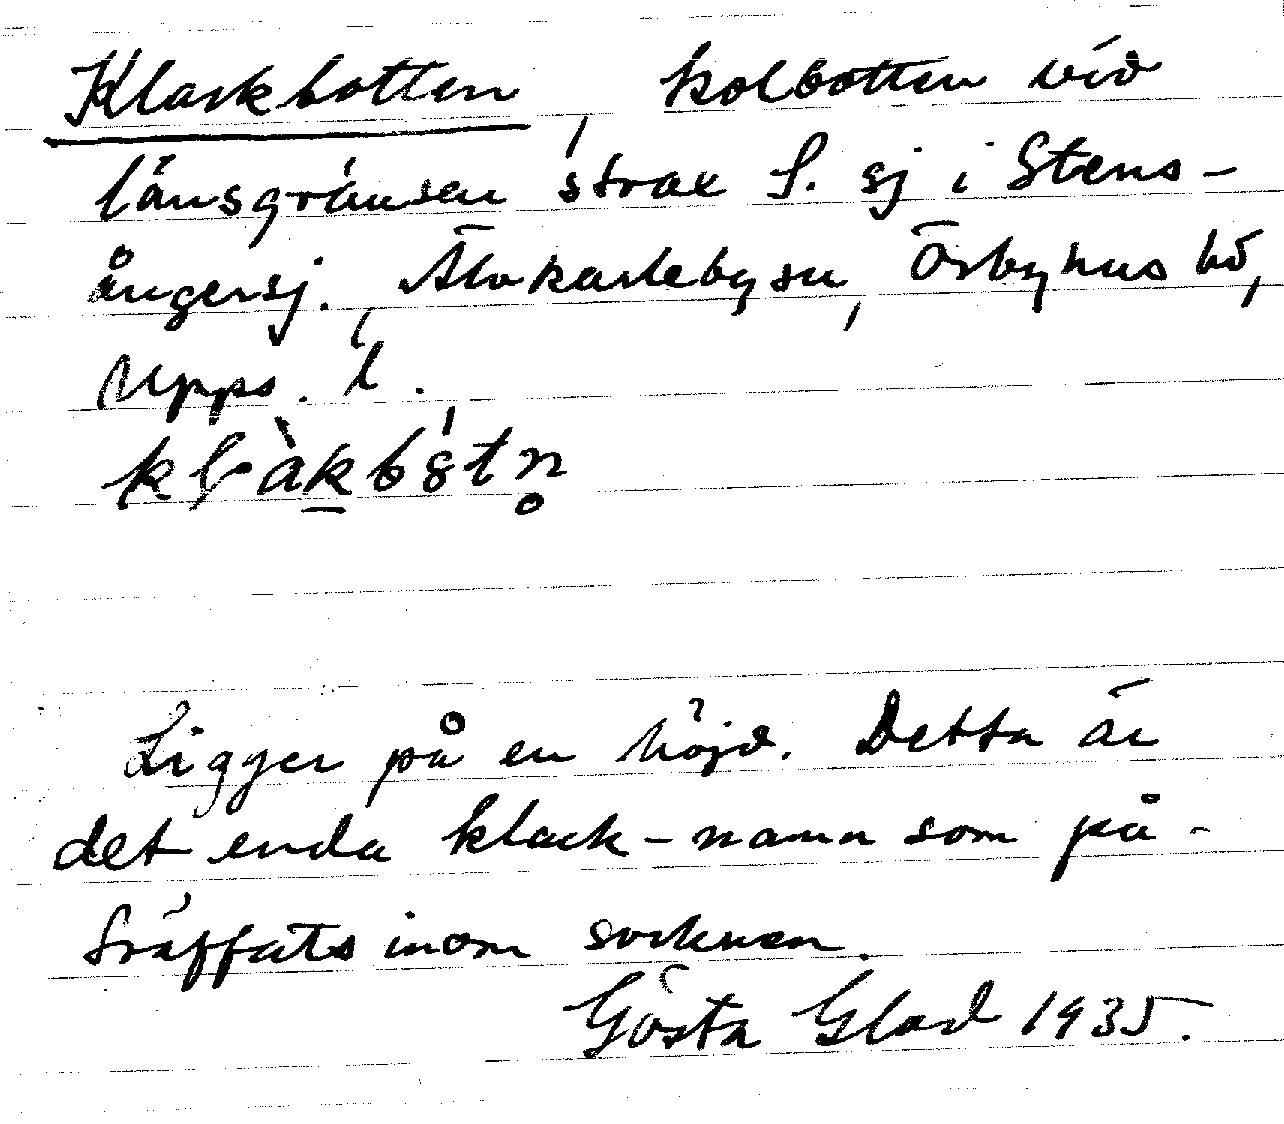 Klackbotten, kolbotten vid
länsgränsen strax S. sj i Stens-
ångersj. Älvkarlebysn, Örbyhus hd,
Upps. l.
Ligger på en höjd. Detta är
det enda klack-namn som på-
träffats inom socknen.
Gösta Glad 1935.